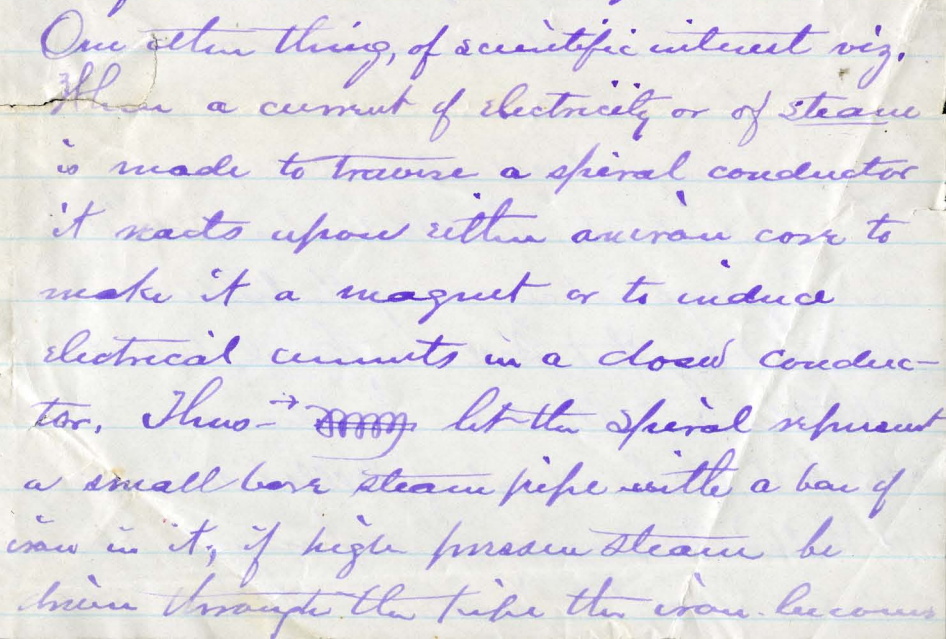 One other thing, of scientific interest viz.
When a current of electricity or of steam
is made to traverse a spiral conductor
it reacts upon either an iron core to
make it a magnet or to induce
electrical currents in a closed conduc-
tor. Thus - let the spiral represent
a small bore steam pipe with a bar of
iron in it, if high pressure steam be
driven through the pipe the iron becomes